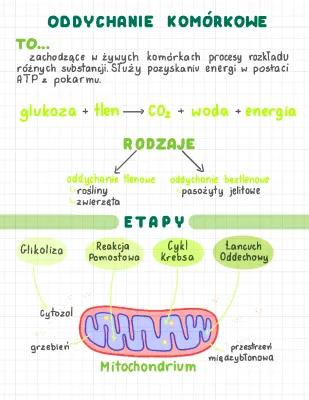 ODDYCHANIE KOMÓRKOWE
TO...
zachodzące w żywych komórkach procesy rozkładu
różnych substancji. Służy pozyskaniu energi w postaci
ATP z pokarmu.
glukoza + tlen → CO₂ + woda + energia
RODZAJE
oddychanie tlenowe
rośliny
zwierzęta
oddychanie beztlenowe
pasożyty jelitowe
ETAPY
Glikoliza
Reakcja
Pomostowa
Cykl
Krebsa
Łańcuch
Oddechowy
Cytozol
grzebień
przestrzeń
międzybłonowa
Mitochondrium